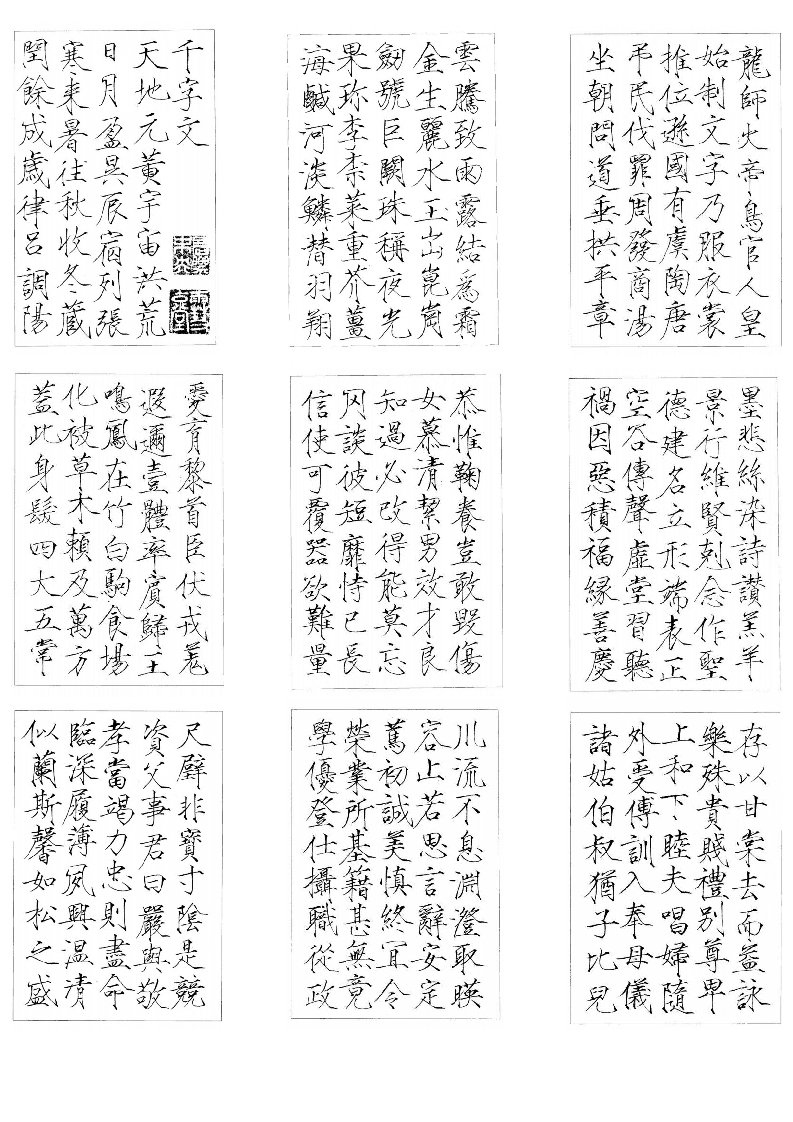 千字文
天地元黄宇宙洪荒
日月盈昃辰宿列張
寒来暑往秋收冬藏
閏餘成歲律呂調陽
雲騰致雨露結為霜
金生麗水玉出崑崗
劔號巨闕珠稱夜光
果珍李柰菜重芥薑
海鹹河淡鱗替羽翔
龍師火帝鳥官人皇
始制文字乃服衣裳
推位遜國有虞陶唐
弔民伐罪周發商湯
坐朝問道垂拱平章
愛育黎首臣伏戎羌
遐邇壹體率賓歸王
鳴鳳在竹白駒食場
化被草木賴及萬方
蓋此身髮四大五常
恭惟鞠養豈敢毀傷
女慕清絜男效才良
知過必改得能莫忘
罔談彼短靡恃己長
信使可覆器欲難量
墨悲絲染詩讚羔羊
景行維賢剋念作聖
德建名立形端表正
空谷傳聲虛堂習聽
禍因惡積福緣善慶
尺璧非寶寸陰是競
資父事君曰嚴與敬
孝當竭力忠則盡命
臨深履薄夙興温清
似蘭斯馨如松之盛
川流不息淵澄取暎
容止若思言辭安定
篤初誠美慎終宜令
榮業所基籍甚無竟
學優登仕攝職從政
存以甘棠去而益詠
樂殊貴賤禮別尊卑
上和下睦夫唱婦隨
外受傅訓入奉母儀
諸姑伯叔猶子比兒